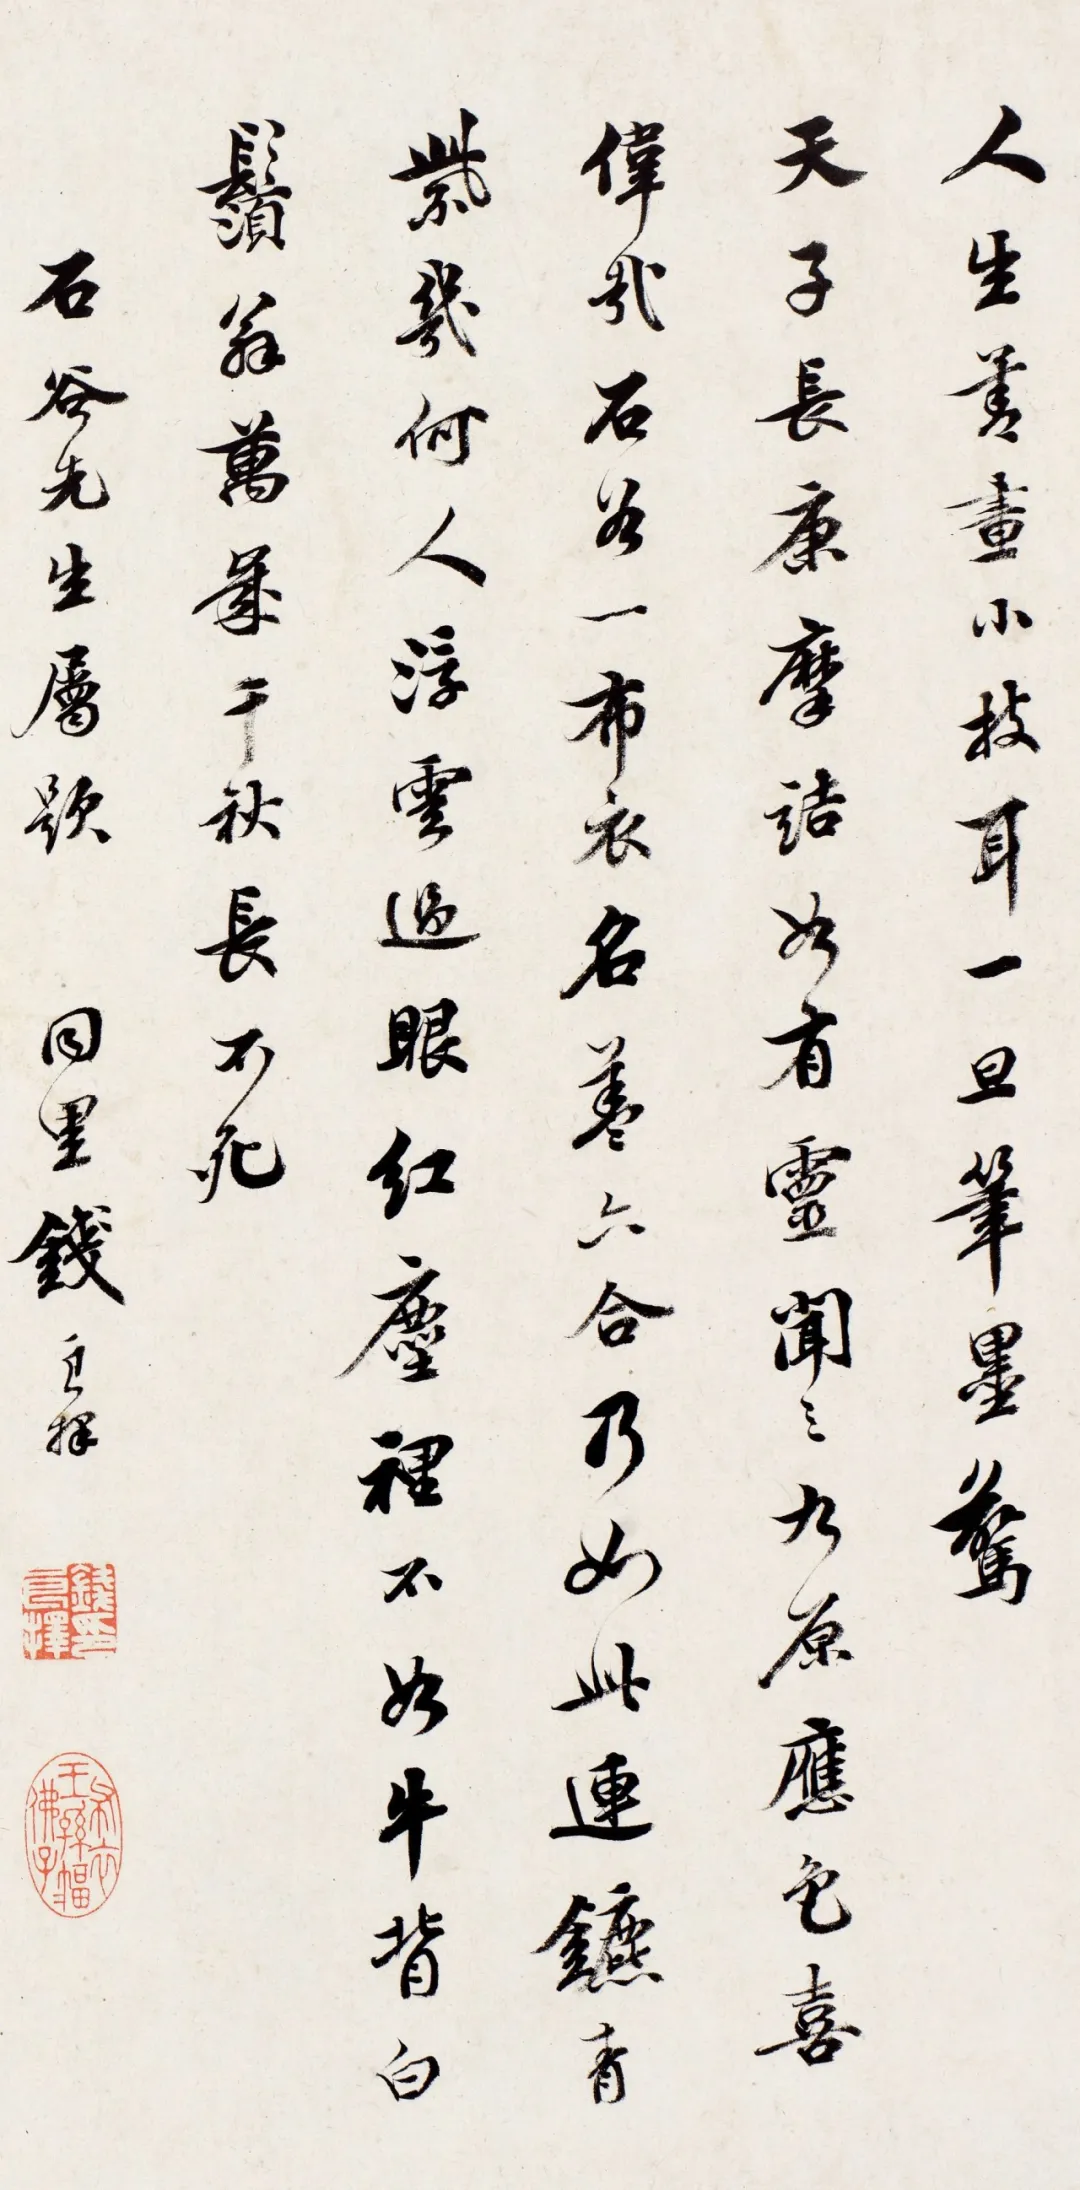 人生善畫小技耳一旦筆墨驚
天子長康摩詰如有靈聞之九原應色喜
偉哉石谷一布衣名蓋六合乃如此連鑣青
紫幾何人浮雲過眼紅塵裡不如牛背白
鬚翁萬歲千秋長不死
石谷先生屬題 同里錢良擇
錢良擇印